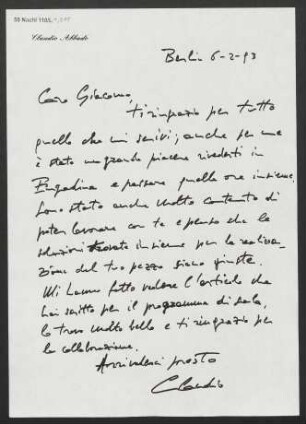 55 Nachl 110/
Claudio Abbado
Berlin 6-2-93
Caro Giacomo,
ti ringrazio per tutto
quello che mi scrivi; anche per me
è stato un grande piacere rivederti in
Engadina e passare quelle ore insieme.
Sono stato anche molto contento di
poter lavorare con te e penso che le
soluzioni trovate insieme per la realizza-
zione del tuo pezzo siano giuste.
Mi hanno fatto vedere l'articolo che
hai scritto per il programma di sala,
lo trovo molto bello e ti ringrazio per
la collaborazione.
Arrivederci presto
Claudio